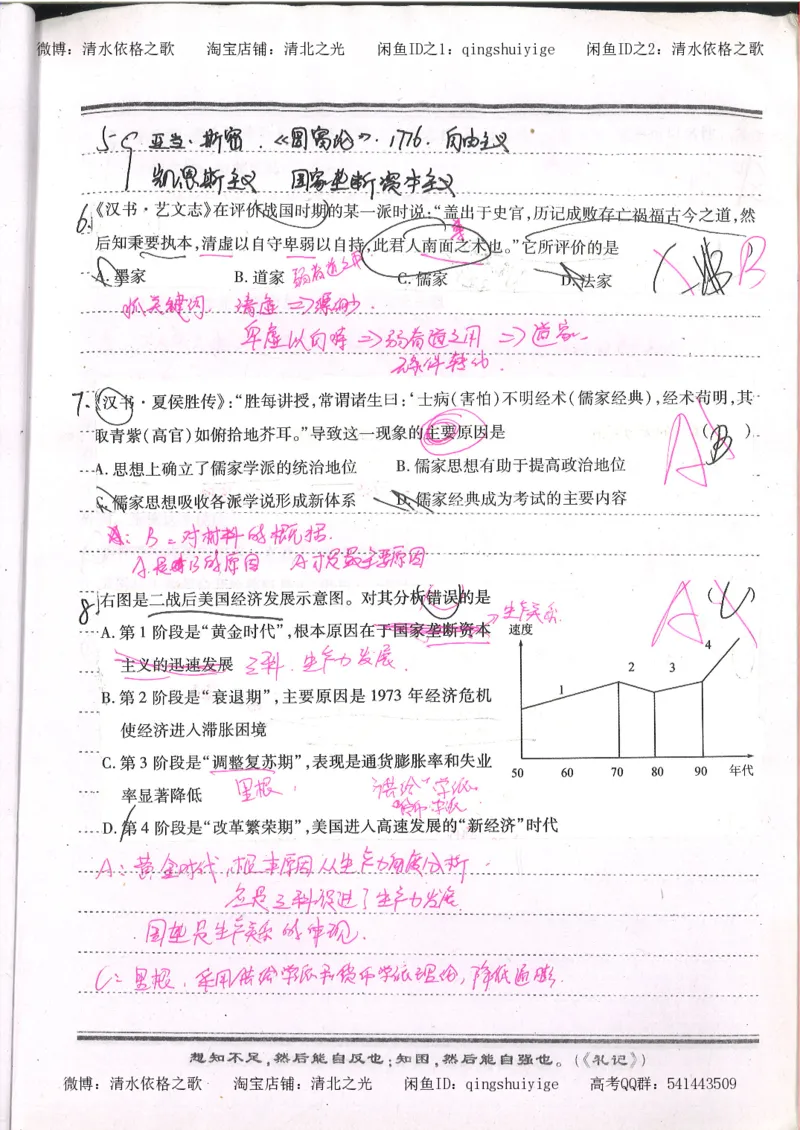 微博：清水依格之歌 淘宝店铺：清北之光 闲鱼ID之1：qingshuiyige 闲鱼ID之2：清水依格之歌
5 亚当·斯密．《国富论》．1776．自由主义
凯恩斯主义 国家垄断资本主义
6.《汉书·艺文志》在评价战国时期的某一派时说：“盖出于史官，历记成败存亡祸福古今之道，然
后知秉要执本，清虚以自守卑弱以自持，此君人南面之术也。”它所评价的是 （ B ）
A. 墨家 B. 道家 弱者道之用 C. 儒家 D. 法家
抓关键词 清虚⇒
卑虚以自持⇒弱者道之用⇒道家
条件转化
7.《汉书·夏侯胜传》：“胜每讲授，常谓诸生曰：‘士病（害怕）不明经术（儒家经典），经术苟明，其
取青紫（高官）如俯拾地芥耳。”导致这一现象的主要原因是 （ B ） A
A. 思想上确立了儒家学派的统治地位 B. 儒家思想有助于提高政治地位
C. 儒家思想吸收各派学说形成新体系 D. 儒家经典成为考试的主要内容
A：B=对材料的概括．
A是B的原因 A才是最主要原因
8.右图是二战后美国经济发展示意图。对其分析错误的是 （ C ） A
A. 第1阶段是“黄金时代”，根本原因在于国家垄断资本 生产关系
主义的迅速发展 三科．生产力发展．
B. 第2阶段是“衰退期”，主要原因是1973年经济危机
使经济进入滞胀困境
C. 第3阶段是“调整复苏期”，表现是通货膨胀率和失业
率显著降低 里根． 供给学派
货币学派
D. 第4阶段是“改革繁荣期”，美国进入高速发展的“新经济”时代
速度
1 2 3 4
50 60 70 80 90 年代
A：黄金时代，根本原因从生产力角度分析．
应是三科促进了生产力发展
国垄是生产关系的体现．
C：里根，采用供给学派和货币学派理论，降低通膨．
想知不足，然后能自反也；知困，然后能自强也。（《礼记》）
微博：清水依格之歌 淘宝店铺：清北之光 闲鱼ID：qingshuiyige 高考QQ群：541443509